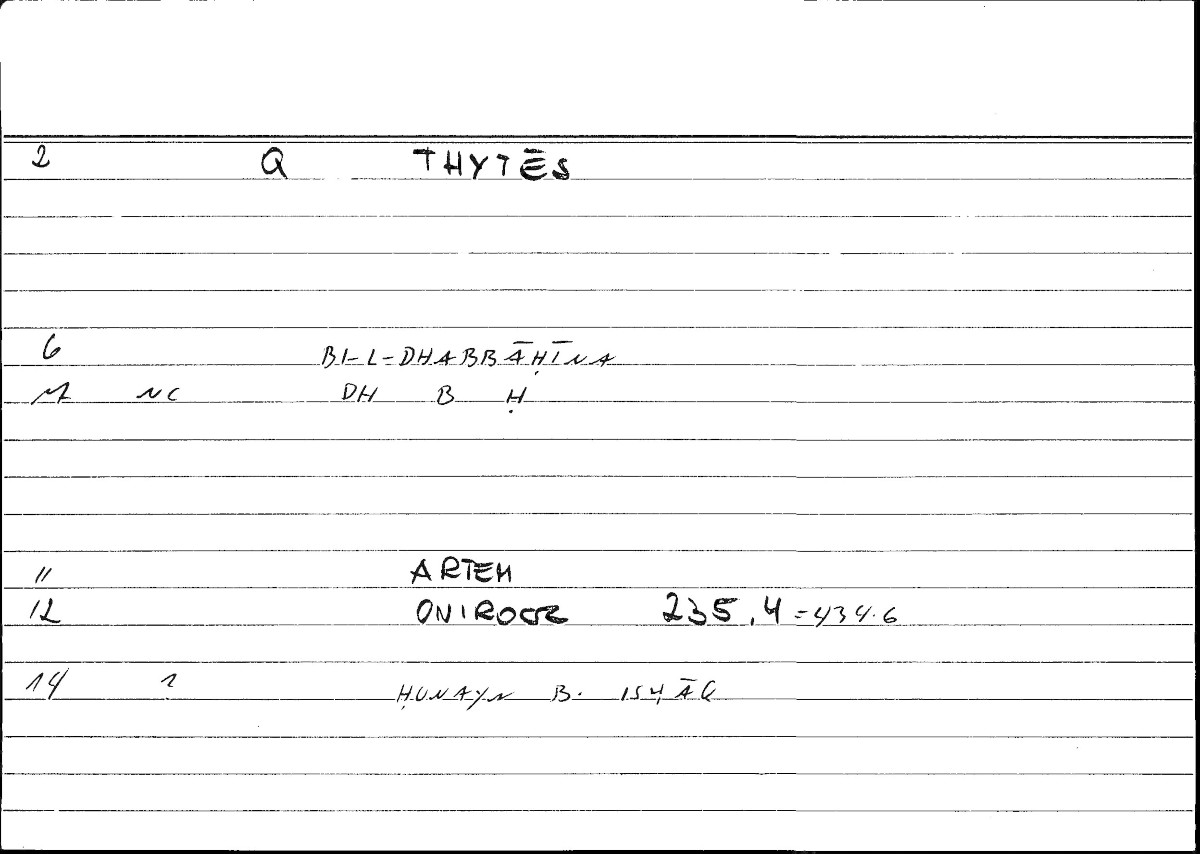 2 Q THYTĒS
6 BI-L-DHABBĀḤĪNA
NC DH B Ḥ
11 ARTEM
12 ONIROCR 235.4 = 434.6
14 1 ḤUNAYN B. ISḤĀQ